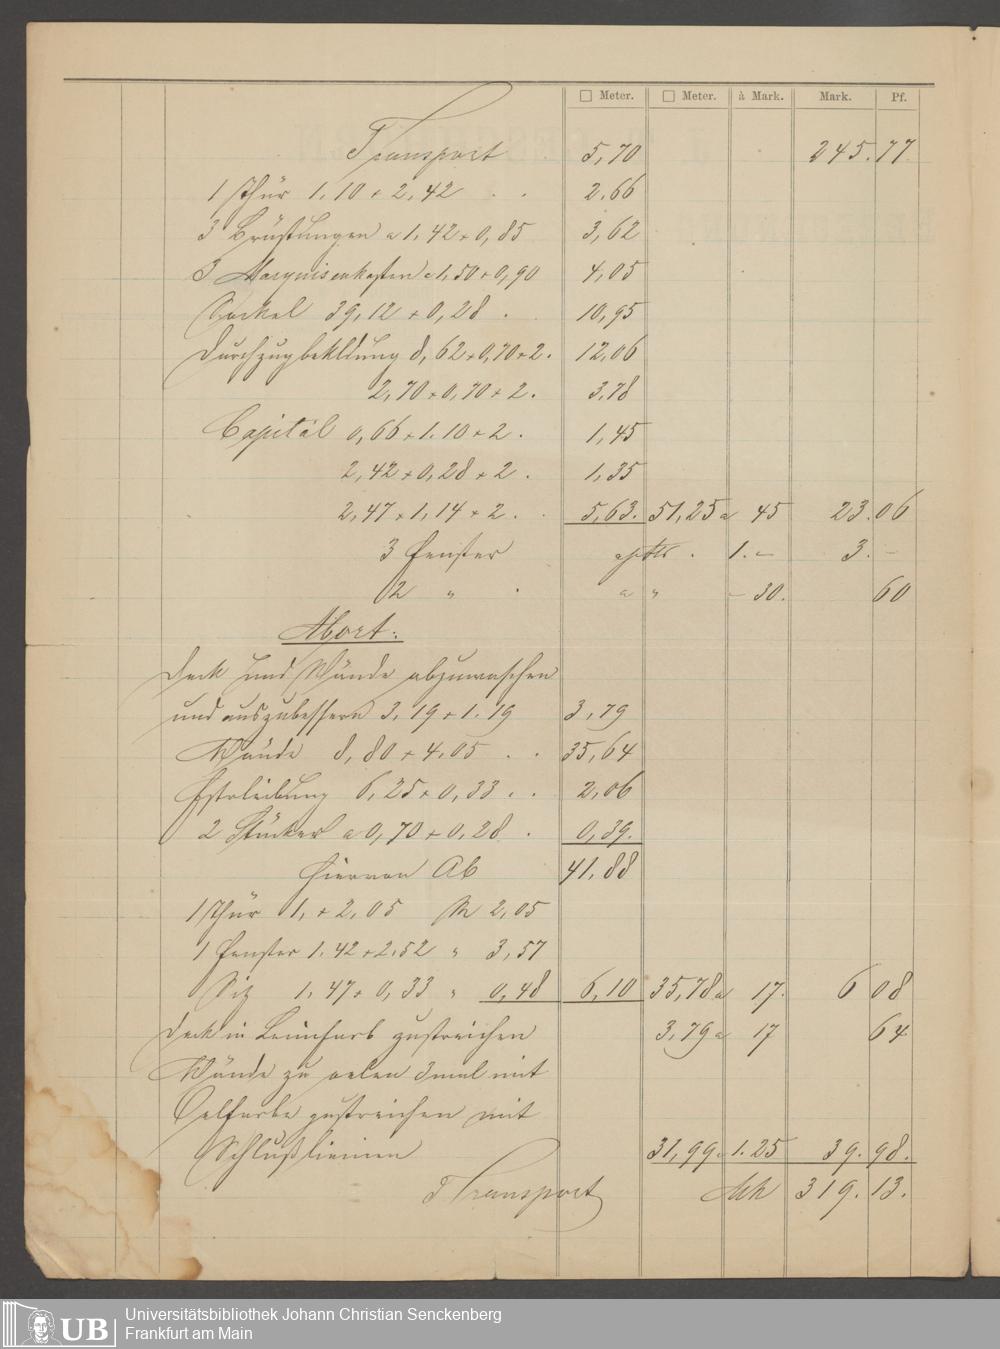 □ Meter. □ Meter. à Mark. Mark. Pf.
Transport 5,70 245.77
1 Thür 1.10 + 2,42 . . 2.66
3 Brüstungen a 1,42 + 0,85 3,62
3 Marquisenkasten a 1,50 + 0,90 4,05
Sockel 39,12 + 0,28 . 10,95
Durchzugbekldung 8,62 + 0,70 + 2. 12,06
2,70 + 0,70 + 2. 3,78
Capitäl 0,66 + 1.10 + 2. 1,45
2,42 + 0,28 + 2. 1,35
2,47 + 1,14 + 2. . 5,63. 51,25 a 45 23.06
3 Fenster 1.— 3.—
2 " . a " — 30. 60
Abort:
Deck und Wände abzuwaschen
und auszubessern 3,19 + 1.19 3,79
Wände 8,80 + 4,05 . . 35,64
Fstrleibung 6,25 + 0,33 . . 2,06
2 Stücker a 0,70 + 0,28 . 0,39.
Hiervon Ab 41,88
1 Thür 1, + 2,05 M 2,05
1 Fenster 1.42 + 2.52 " 3,57
Sitz 1,47 + 0,33 " 0,48 6,10 35,78 a 17. 6 08
Deck in Leimfarb zustreichen 3,79 a 17 64
Wände zu oelen 3mal mit
Oelfarbe zustreichen mit
Schlußlienien 31,99 a 1.25 39.98.
Transport Mk 319.13.
Universitätsbibliothek Johann Christian Senckenberg
Frankfurt am Main
UB